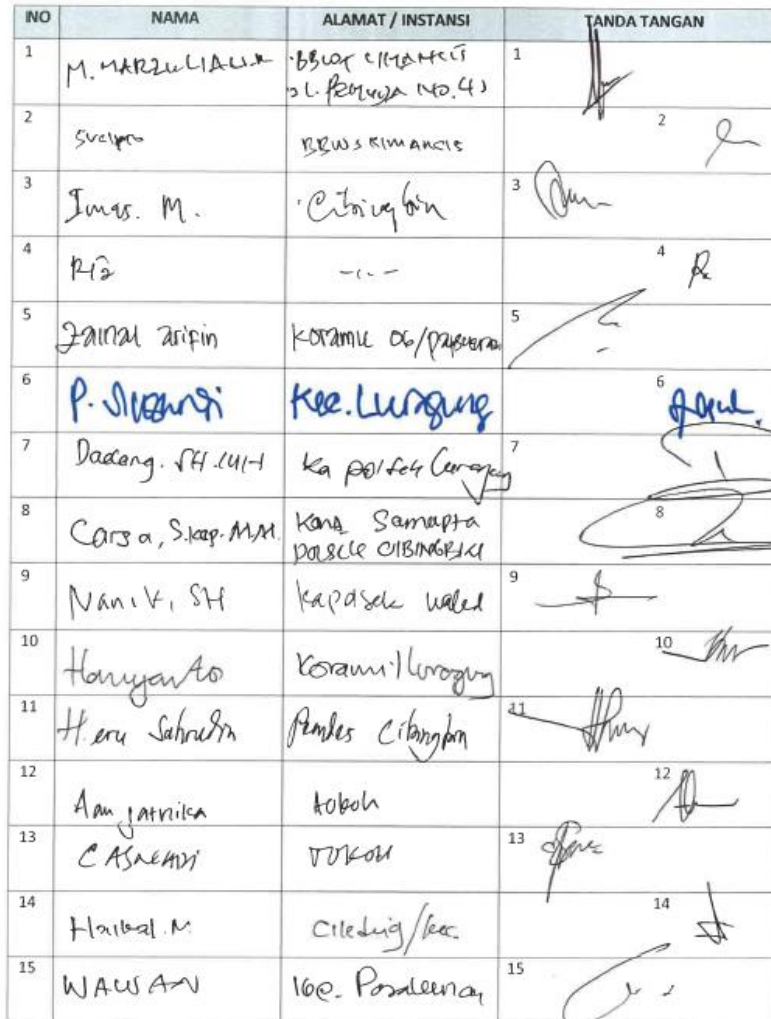 NO NAMA ALAMAT / INSTANSI TANDA TANGAN
1 M. MARZULIALI.R BBWS CIMANCIS 1
JL. PEMUDA NO. 40
2 BBWS CIMANCIS 2
3 Imas. M. Cibingbin 3
4 Ria -"- 4
5 Zainal arifin Koramil 06/ 5
6 P. Kec. Luragung 6
7 Dadang. SH.,MH Ka polsek Luragung 7
8 Carsa, S.kep. M.M. Kanit Samapta 8
POLSEK CIBINGBIN
9 Nani K, SH Kapolsek waled 9
10 Haryanto Koramil Luragung 10
11 Heru Sahrudin Pemdes Cibingbin 11
12 Aan jatnika tokoh 12
13 CASNENDI TOKOH 13
14 Haikal. M Ciledug/kec. 14
15 WAWAN Kec. Pasaleman 15